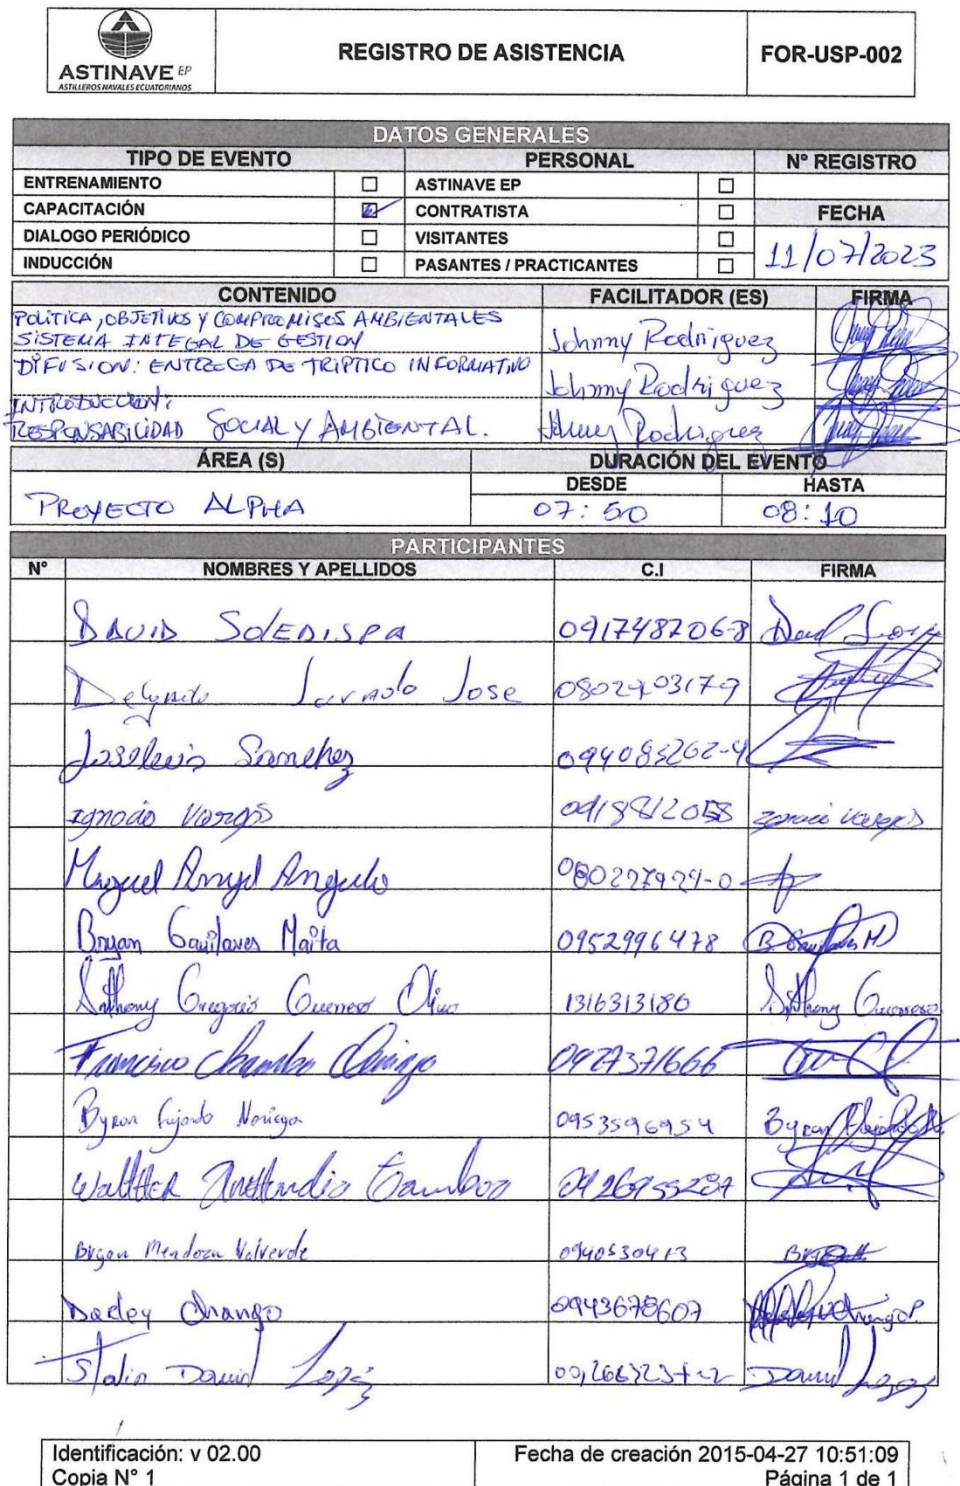 ASTINAVE EP
ASTILLEROS NAVALES ECUATORIANOS
REGISTRO DE ASISTENCIA
FOR-USP-002
DATOS GENERALES
TIPO DE EVENTO PERSONAL N° REGISTRO
ENTRENAMIENTO ASTINAVE EP
CAPACITACIÓN CONTRATISTA FECHA
DIALOGO PERIÓDICO VISITANTES 11/07/2023
INDUCCIÓN PASANTES / PRACTICANTES
CONTENIDO FACILITADOR (ES) FIRMA
POLÍTICA, OBJETIVOS Y COMPROMISOS AMBIENTALES
SISTEMA INTEGAL DE GESTION Johnny Rodriguez
DIFUSION: ENTREGA DE TRIPTICO INFORMATIVO Johnny Rodriguez
INTRODUCCION:
RESPONSABILIDAD SOCIAL Y AMBIENTAL. Rodriguez
ÁREA (S) DURACIÓN DEL EVENTO
DESDE HASTA
PROYECTO ALPHA 07:50 08:10
PARTICIPANTES
N° NOMBRES Y APELLIDOS C.I FIRMA
DAVID SOLEDISPA 091748206-8 David
Delgado Jose
Joseluis Sanchez 094083262-4
Ignacio Vargas Ignacio Vargas
Miguel Angel Angulo
Bryan Gavilanes Maita 0952996478 B. Gavilanes M
Anthony Gregorio Guerrero 1316313180 Anthony Guerrero
Francisco 0927371666
Byron Fajardo Noriega 0953596954 Byron Fajardo N.
WALTHER Gamboa
Bryan Mendoza Valverde 0940530413
Darley Chango 0943678607 Chango P.
Stalin David Lopez David Lopez
Identificación: v 02.00 Fecha de creación 2015-04-27 10:51:09
Copia N° 1 Página 1 de 1